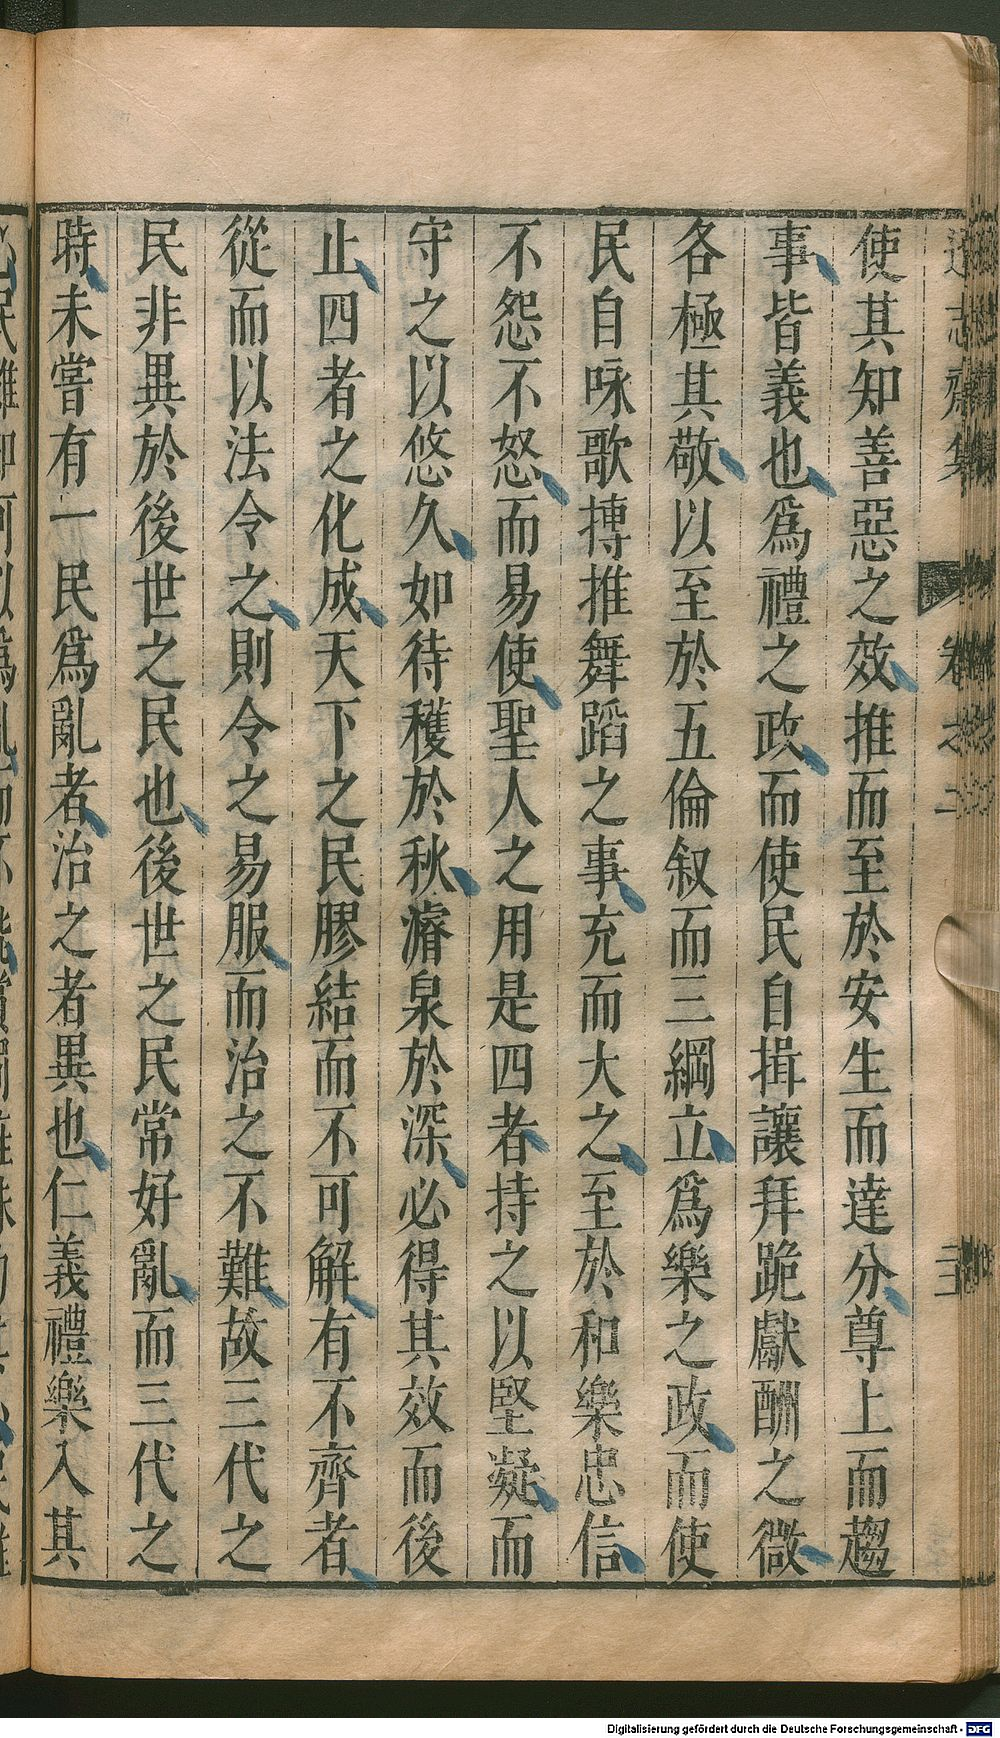 遜志齋集 卷之二 二三
使其知善惡之效推而至於安生而達分尊上而趨
事皆義也爲禮之政而使民自揖讓拜跪獻酬之微
各極其敬以至於五倫叙而三綱立爲樂之政而使
民自咏歌摶推舞蹈之事充而大之至於和樂忠信
不怨不怒而易使聖人之用是四者持之以堅凝而
守之以悠久如待穫於秋濬泉於深必得其效而後
止四者之化成天下之民膠結而不可解有不齊者
從而以法令之則令之易服而治之不難故三代之
民非異於後世之民也後世之民常好亂而三代之
時未嘗有一民爲亂者治之者異也仁義禮樂入其
Digitalisierung gefördert durch die Deutsche Forschungsgemeinschaft - DFG